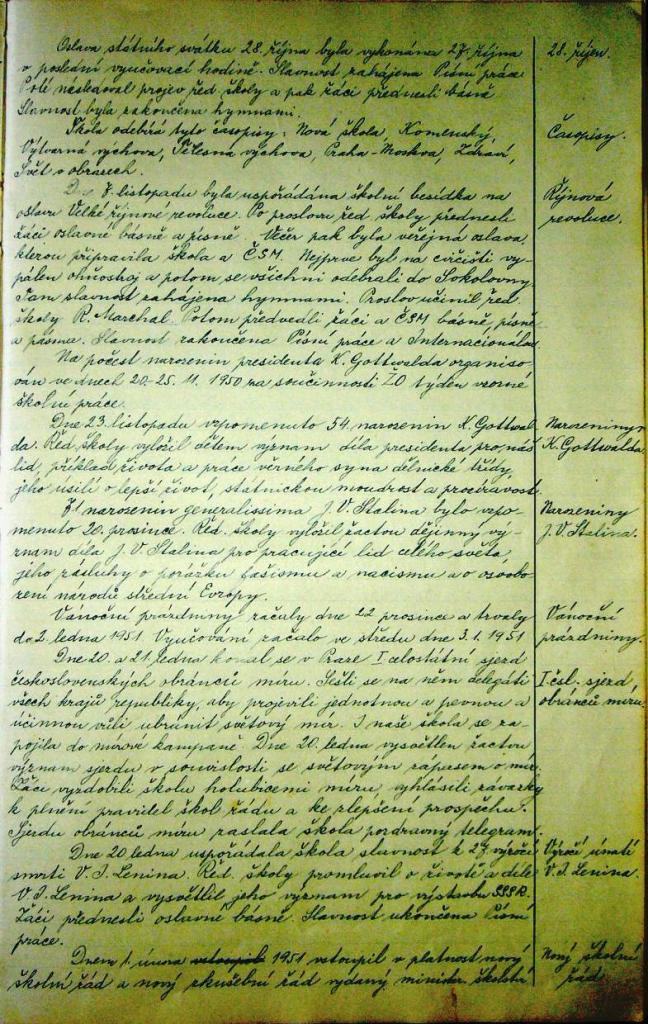 Oslava státního svátku 28. října byla vykonána 27. října
v poslední vyučovací hodině. Slavnost zahájena Písní práce.
Poté následoval projev řed. školy a pak žáci přednesli básně.
Slavnost byla zakončena hymnami.
Škola odebírá tyto časopisy: Nová škola, Komenský,
Výtvarná výchova, Tělesná výchova, Praha-Moskva, Zdraví,
Svět v obrazech.
Dne 7. listopadu byla uspořádána školní besídka na
oslavu Velké říjnové revoluce. Po proslovu řed. školy přednesli
žáci oslavné básně a písně. Večer pak byla veřejná oslava,
kterou připravila škola a ČSM. Nejprve byl na cvičišti vy-
pálen ohňostroj a potom se všichni odebrali do Sokolovny.
Tam slavnost zahájena hymnami. Proslov učinil řed.
školy R. Marchal. Potom předvedli žáci a ČSM básně, písně
a pásma. Slavnost zakončena Písní práce a Internacionálou.
Na počest narozenin presidenta K. Gottwalda organiso-
ván ve dnech 20.-25. 11. 1950 za součinnosti ZO týden vzorné
školní práce.
Dne 23. listopadu vzpomenuto 54. narozenin K. Gottwal-
da. Řed. školy vyložil dětem význam díla presidenta pro náš
lid, příklad života a práce věrného syna dělnické třídy,
jeho úsilí o lepší život, státnickou moudrost a prozíravost.
71. narozenin generalissima J. V. Stalina bylo vzpo-
menuto 20. prosince. Řed. školy vyložil žactvu dějinný vý-
znam díla J. V. Stalina pro pracující lid celého světa,
jeho zásluhy o porážku fašismu a nacismu a o osvobo-
zení národů střední Evropy.
Vánoční prázdniny začaly dne 22. prosince a trvaly
do 2. ledna 1951. Vyučování začalo ve středu dne 3. 1. 1951
Dne 20. a 21. ledna konal se v Praze I. celostátní sjezd
československých obránců míru. Sešli se na něm delegáti
všech krajů republiky, aby projevili jednotnou a pevnou a
účinnou vůli ubránit světový mír. I naše škola se za-
pojila do mírové kampaně. Dne 20. ledna vysvětlen žactvu
význam sjezdu v souvislosti se světovým zápasem o mír.
Žáci vyzdobili školu holubicemi míru, vyhlásili závazky
k plnění pravidel škol. řádu a ke zlepšení prospěchu.
Sjezdu obránců míru zaslala škola pozdravný telegram.
Dne 20. ledna uspořádala škola slavnost k 27. výročí
smrti V. I. Lenina. Řed. školy promluvil o životě a díle
V. I. Lenina a vysvětlil jeho význam pro výstavbu SSSR.
Žáci přednesli oslavné básně. Slavnost ukončena Písní
práce.
Dnem 1. února vstoupil 1951 vstoupil v platnost nový
školní řád a nový zkušební řád vydaný minist. školství
28. říjen.
Časopisy.
Říjnová
revoluce.
Narozeniny
K. Gottwalda
Narozeniny
J. V. Stalina.
Vánoční
prázdniny.
I. čsl. sjezd
obránců míru.
Výročí úmrtí
V. I. Lenina.
Nový školní
řád